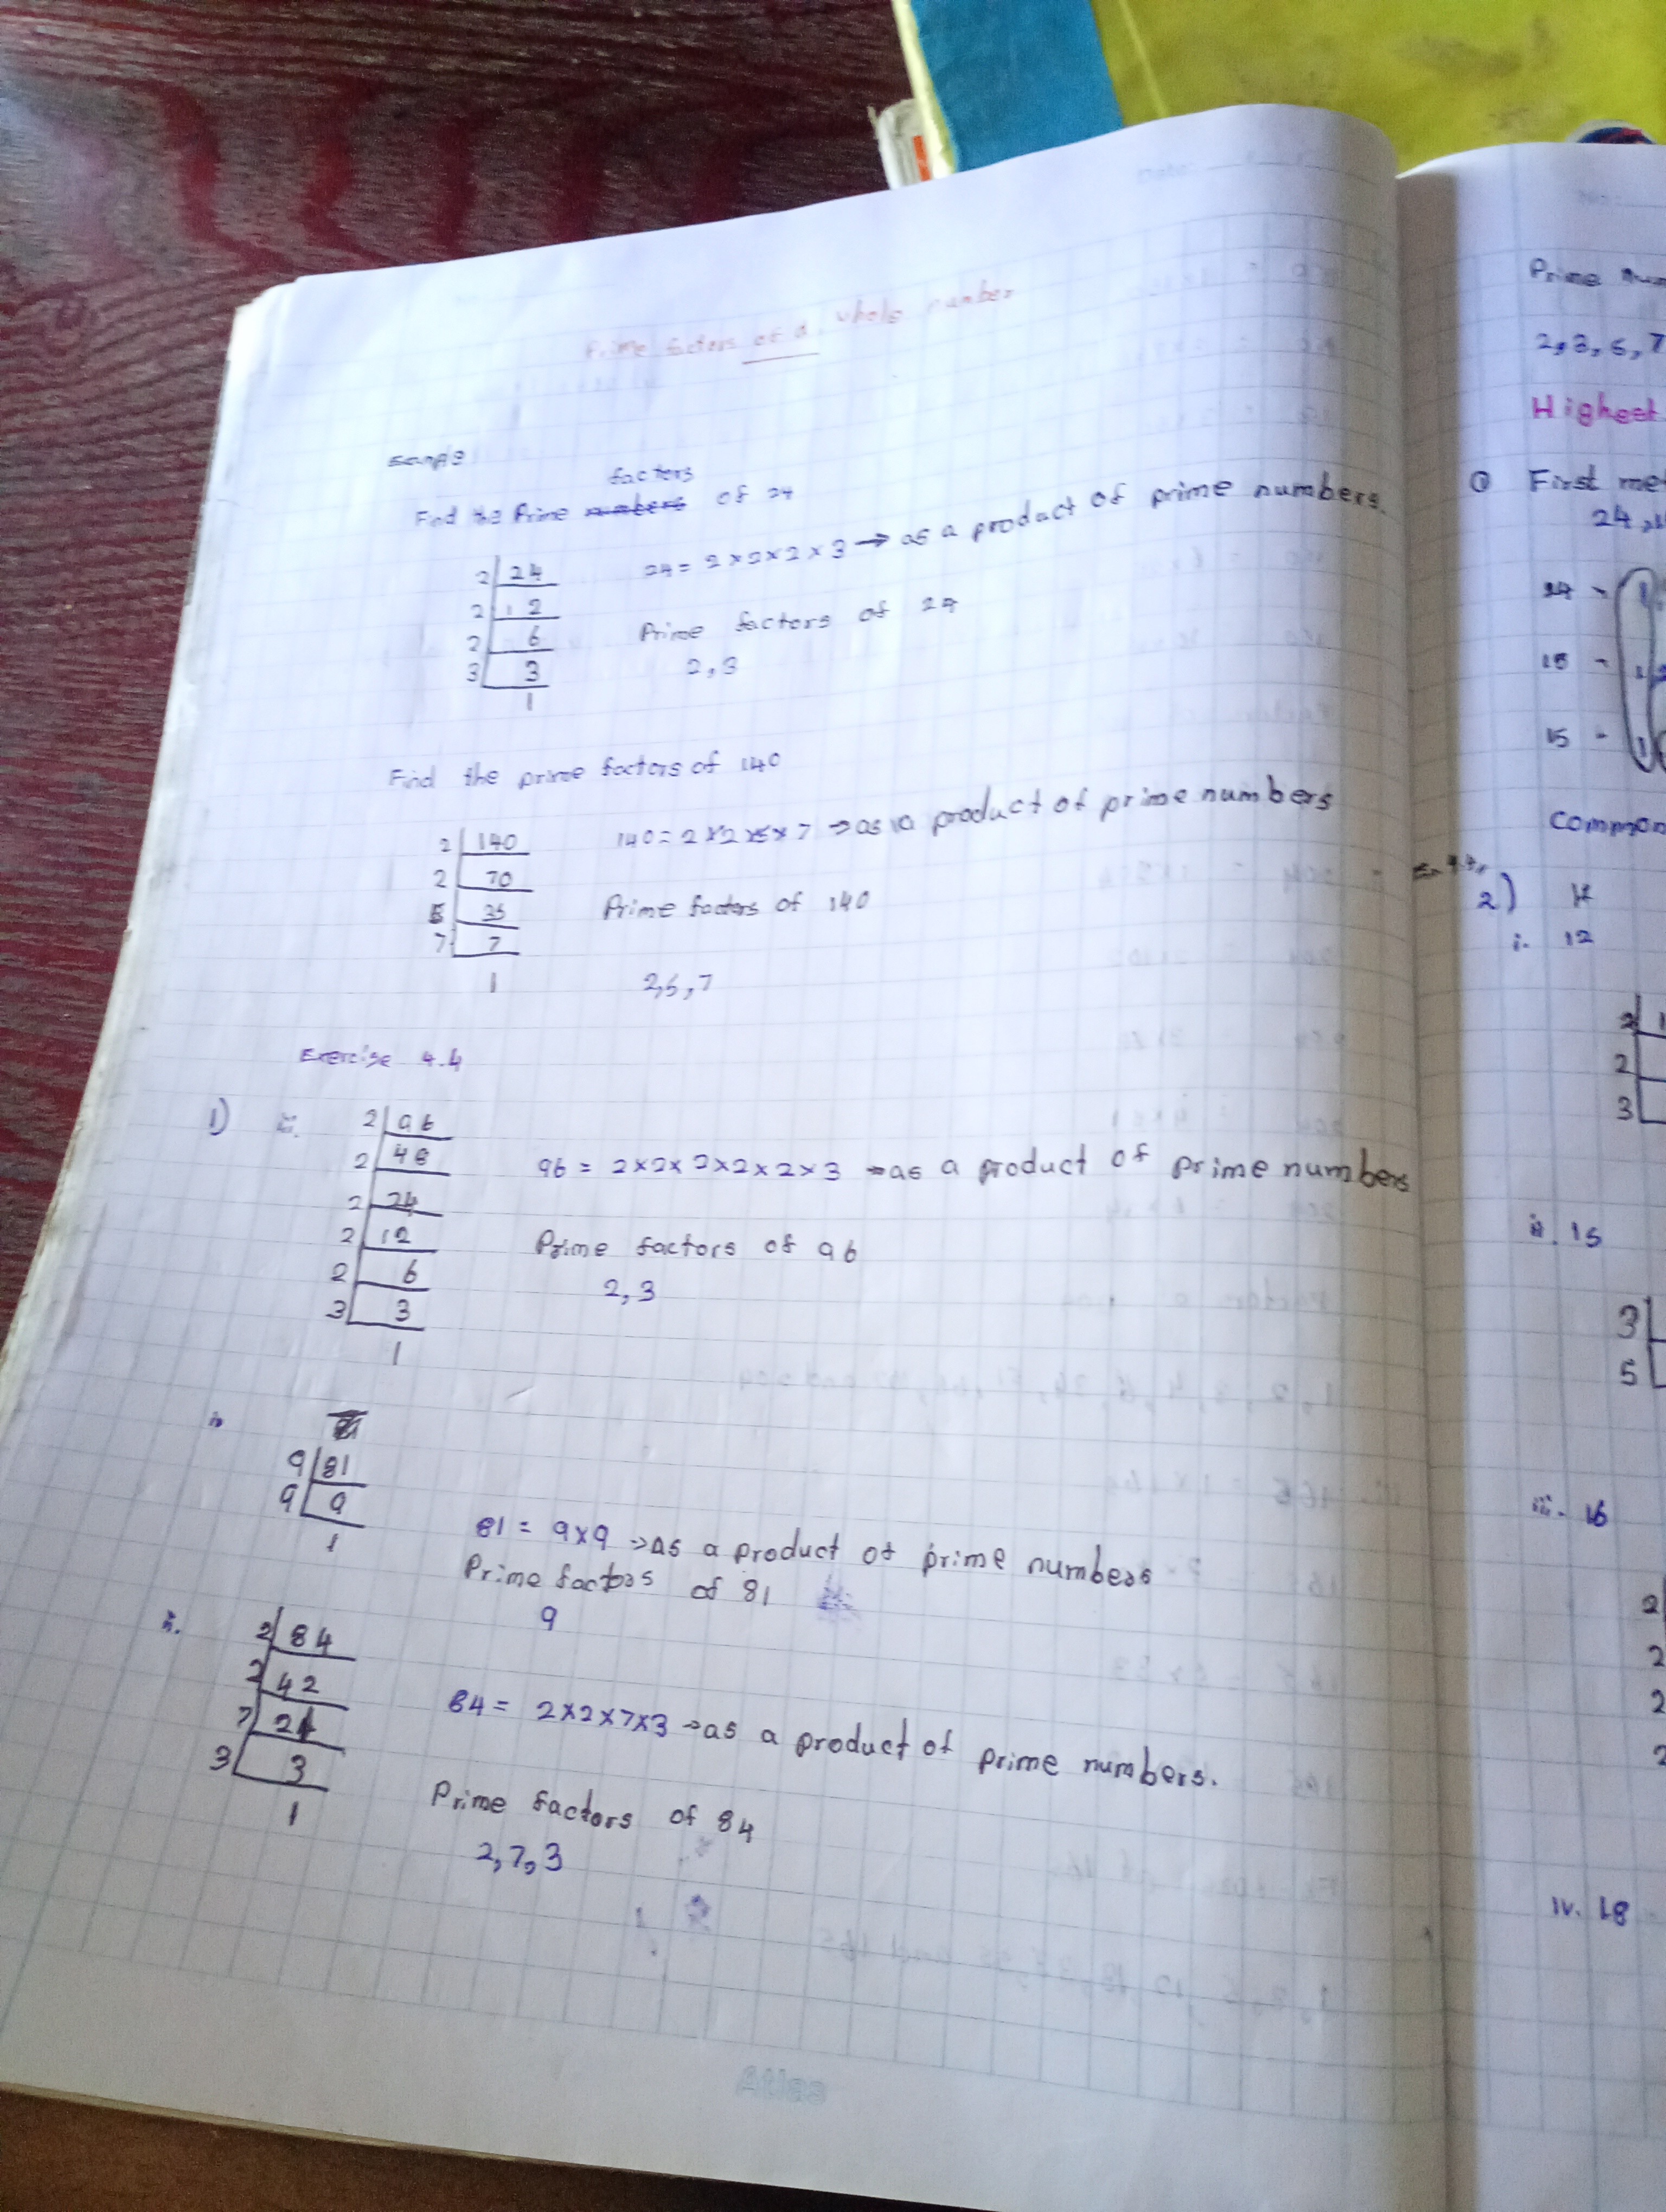 Date:
Prime factors of a whole number
Example
factors
Find the Prime numbers of 24
2 24
24 = 2 x 2 x 2 x 3 → as a product of prime numbers.
2 12
2 6
Prime factors of 24
3 3
2, 3
1
Find the prime factors of 140
2 140
140 = 2 x 2 x 5 x 7 → as a product of prime numbers
2 70
5 35
Prime factors of 140
7 7
1
2,5,7
Exercise 4.4
1)
2 96
2 48
96 = 2 x 2 x 2 x 2 x 2 x 3 → as a product of prime numbers
2 24
2 12
Prime factors of 96
2 6
2, 3
3 3
1
9 81
9 9
1
81 = 9 x 9 → as a product of prime numbers
Prime factors of 81
9
ii.
2 84
2 42
84 = 2 x 2 x 7 x 3 → as a product of prime numbers.
7 21
3 3
1
Prime factors of 84
2,7,3
Atlas
Prime
2,3,5,7
Highest
First
24
24
15
Common
2)
i. 12
2 1
2
3
ii. 15
3
5
iii. 16
2
2
2
2
iv. 18